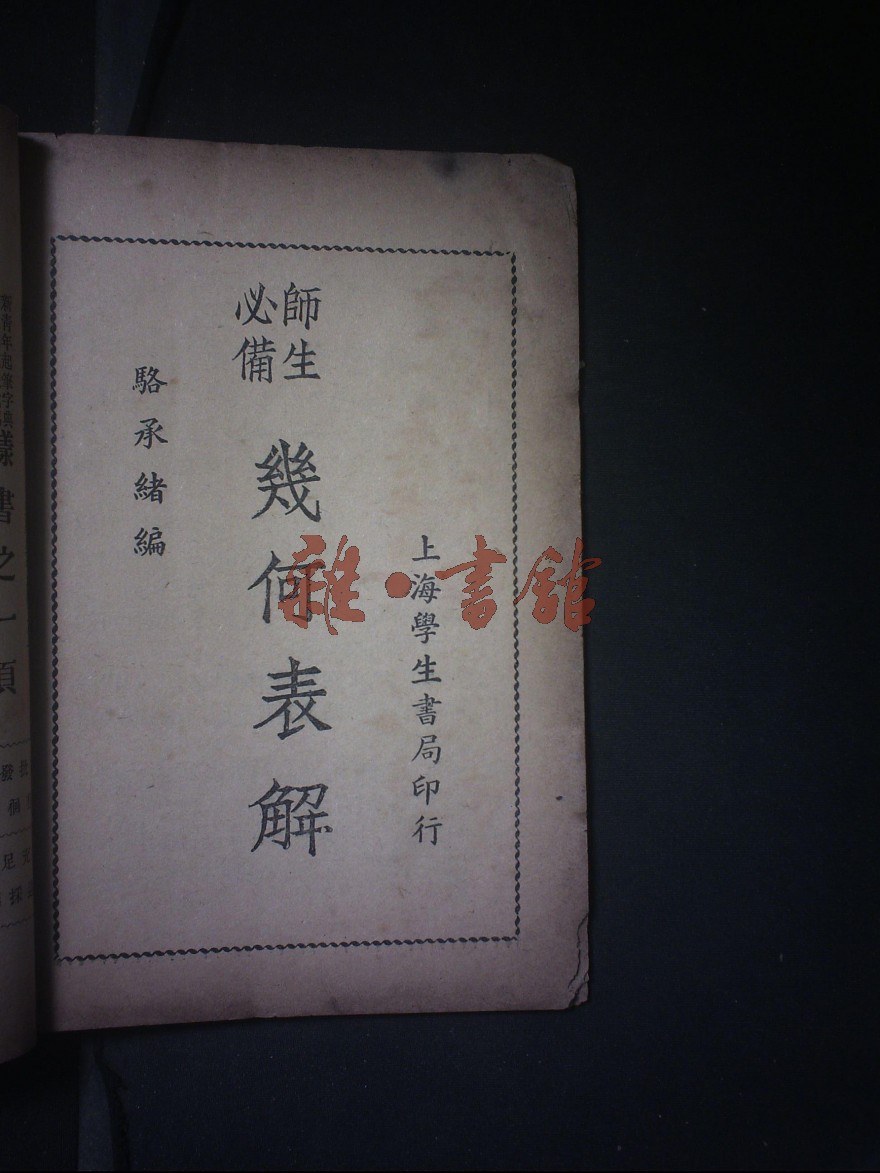 上海學生書局印行
師生
必備
幾何表解
駱承緒編
雜·書館
新青年起筆字典
樣書之一頁